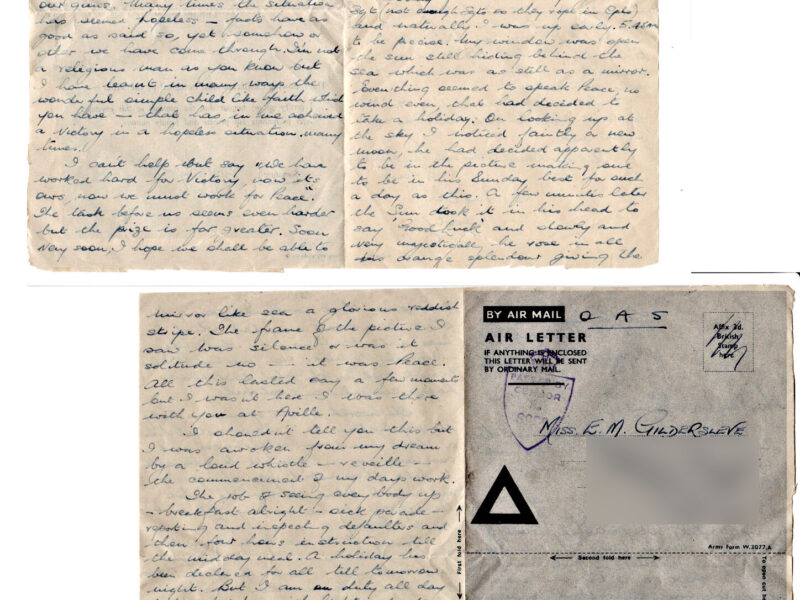 our guns. Many times the situation
has seemed hopeless – facts have as
good as said so, yet somehow or
other we have come through. I'm not
a religious man as you know but
I have learnt in many ways the
wonderful simple child like faith which
you have – that has, in me achieved
a Victory in a hopeless situation many
times.
I can't help but say "We have
worked hard for Victory, now it's
ours, now we must work for Peace".
The task before us seems even harder
but the prize is far greater. Soon
very soon, I hope we shall be able to
Sgt (not enough Sgts so they rope in Cpls)
and naturally I was up early. 5.45am
to be precise. My window was open
the sun still hiding behind the
sea which was as still as a mirror.
Everything seemed to speak Peace, no
wind even, that had decided to
take a holiday. On looking up at
the sky I noticed faintly a new
moon, he had decided apparently
to be in the picture making one
to be in his Sunday best for such
a day as this. A few minutes later
the Sun took it in his head to
say "Good luck" and slowly and
very majestically he rose in all
his orange splendour giving the
mirror like sea a glorious reddish
stripe. The frame of the picture I
saw was silence or was it
solitude no — it was Peace.
All this lasted say a few moments
but I wasn't here I was there
with you at Aville.
I shouldn't tell you this but
I was awoken from my dream
by a loud whistle – reveille –
the commencement of my days work.
The job of seeing everybody up
– breakfast alright – sick parade –
reporting and inspecting defaulters and
then four hours instruction till
the midday meal. A holiday has
been declared for all till tomorrow
night. But I am on duty all day
BY AIR MAIL O A S
AIR LETTER
IF ANYTHING IS ENCLOSED
THIS LETTER WILL BE SENT
BY ORDINARY MAIL.
PASSED BY
CENSOR
No
Affix 3d.
British
Stamp
here
MISS. E. M. GILDERSLEVE
Army Form W.3077.A
Second fold here
First fold here
To open cut